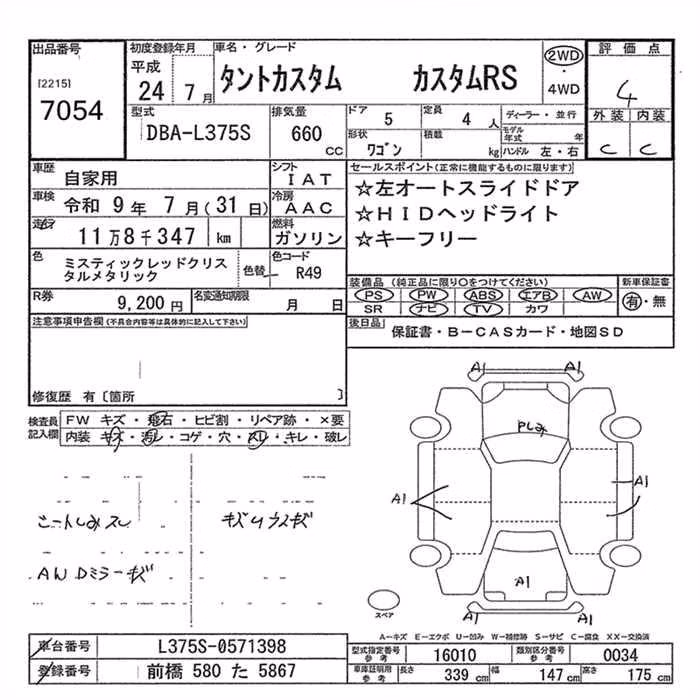 出品番号
[2215]
7054
初度登録年月
平成
24 7月
車名・グレード
タントカスタム カスタムRS
2WD
・
4WD
評価点
4
外装 内装
C C
型式
DBA-L375S
排気量
660
CC
ドア
5
定員
4 人
形状
ワゴン
積載
kg
ディーラー・並行
モデル年式 年
ハンドル 左・右
車歴
自家用
シフト
IAT
車検
令和 9年 7月(31日)
冷房
AAC
走行
11万8千347 km
燃料
ガソリン
色
ミスティックレッドクリス
タルメタリック
色替
色コード
R49
R券
9,200円
名変通知期限
月 日
セールスポイント(正常に機能するものに限ります)
☆左オートスライドドア
☆HIDヘッドライト
☆キーフリー
装備品 (純正品に限り○をつけてください)
PS PW ABS エアB AW
SR ナビ TV カワ
新車保証書
有・無
後日品
保証書・B-CASカード・地図SD
注意事項申告欄(不具合内容等は具体的に記入して下さい)
修復歴 有〔箇所 〕
検査員
記入欄
FW キズ・飛石・ヒビ割・リペア跡・×要
内装 キズ・汚レ・コゲ・穴・スレ・キレ・破レ
シートしみスレ
キズUウスキズ
AW Dミラーキズ
A1 A1
A1
A1
A1
スペア
A-キズ E-エクボ U-凹み W-補修跡 S-サビ C-腐食 XX-交換済
車台番号
L375S-0571398
登録番号
前橋 580 た 5867
型式指定番号
参考
16010
類別区分番号
参考
0034
車庫証明用
参考
長さ 339 cm
幅 147 cm
高さ 175 cm